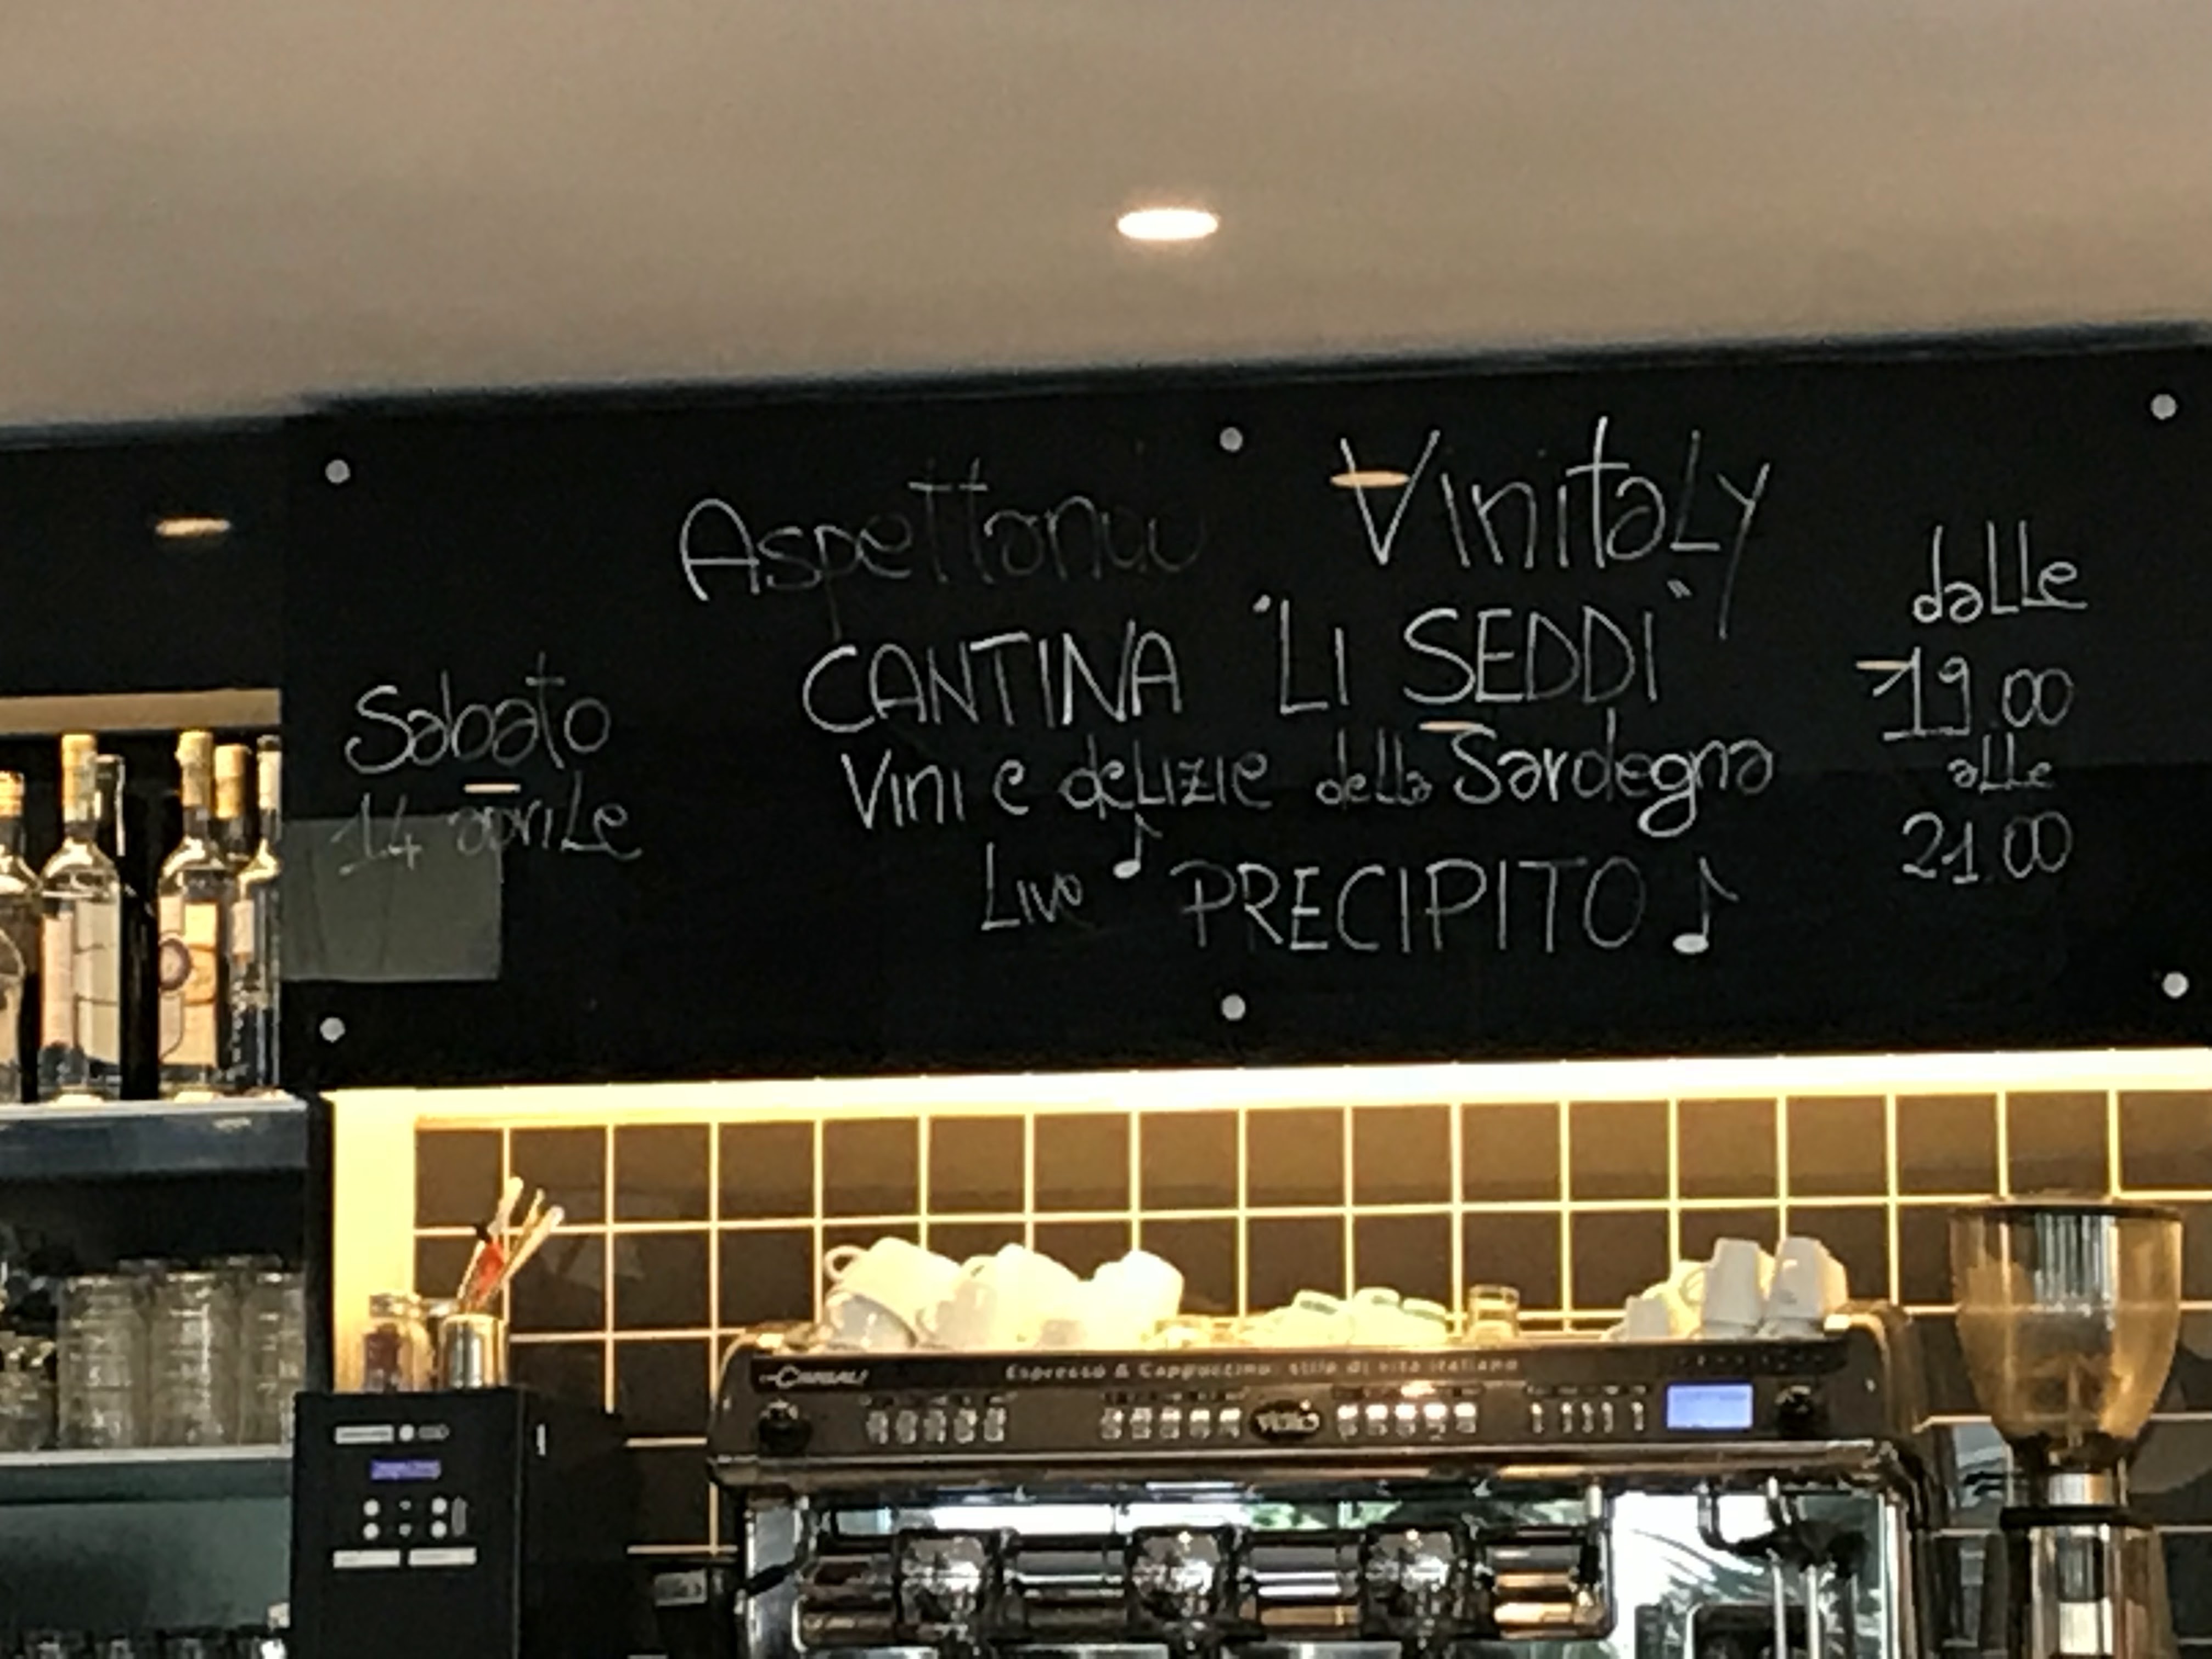 Aspettando Vinitaly
CANTINA "LI SEDDI"
Vini e delizie della Sardegna
Live PRECIPITO
Sabato
14 aprile
dalle
19.00
alle
21.00
LaCimbali Espresso & Cappuccino: stile di vita italiano